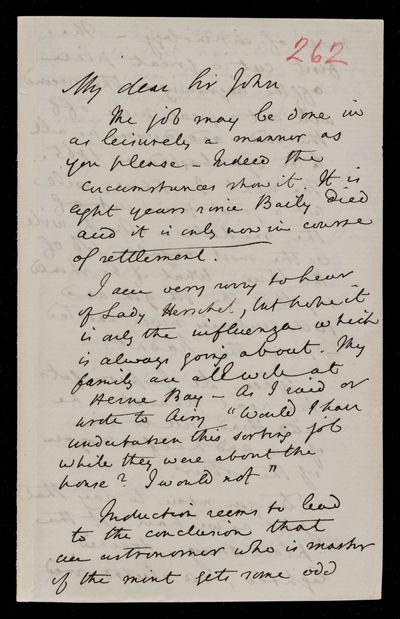 262
My dear Sir John
The job may be done in
as leisurely a manner as
you please - Indeed the
circumstances show it. It is
eight years since Baily died
and it is only now in course
of settlement.
I am very sorry to hear
of Lady Herschel, but hope it
is only the influenza which
is always going about. My
family are all well at
Herne Bay - As I said or
wrote to Airy "Would I have
undertaken this sorting job
while they were about the
house? I would not"
Induction seems to lead
to the conclusion that
an astronomer who is master
of the mint gets some odd